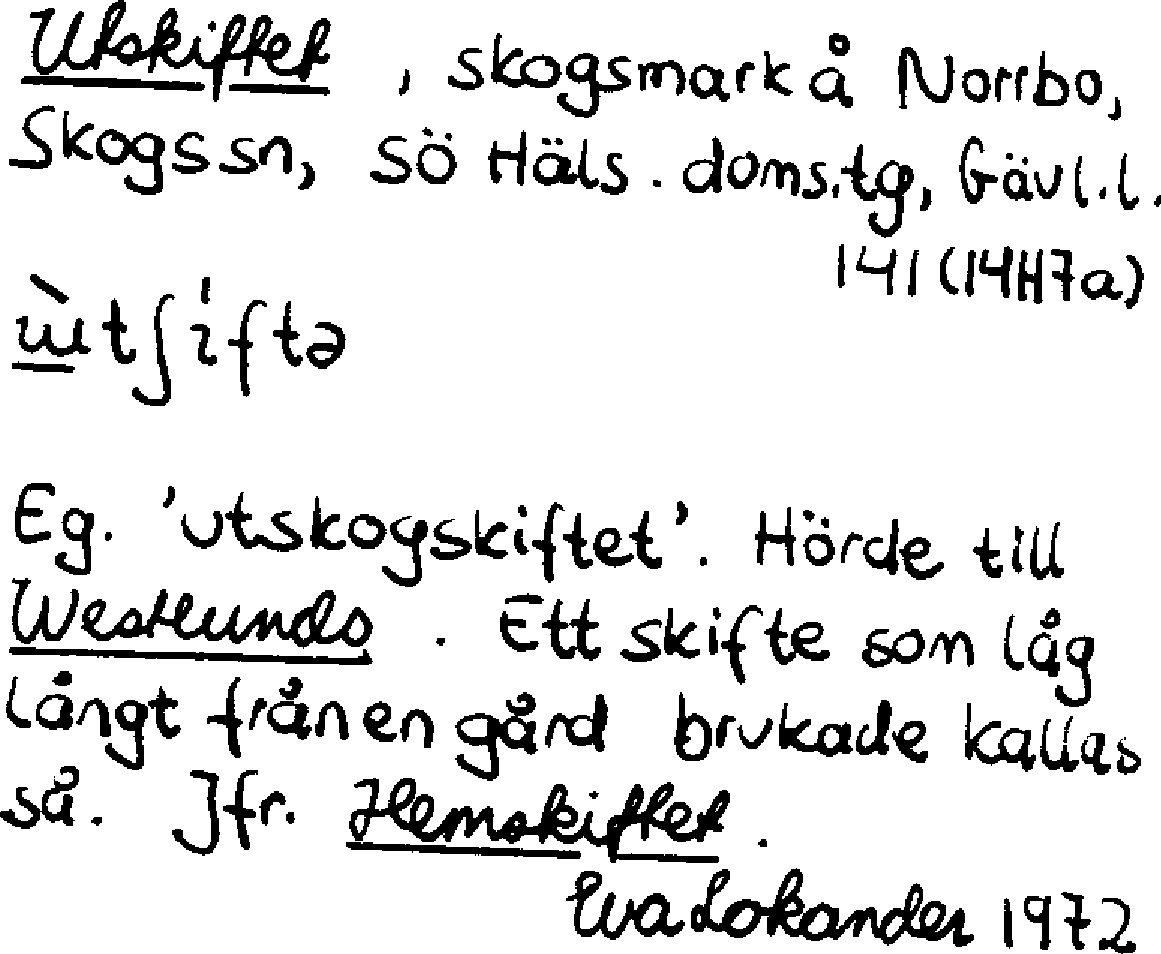 Utskiftet, skogsmark å Norrbo,
Skogs sn, Sö Häls. doms.tg, Gävl.l.
141 (14H7a)
ɯ̲̀tʃı̍ftə
Eg. 'utskogskiftet'. Hörde till
Westlunds. Ett skifte som låg
långt från en gård brukade kallas
så. Jfr. Hemskiftet.
Eva Lokander 1972